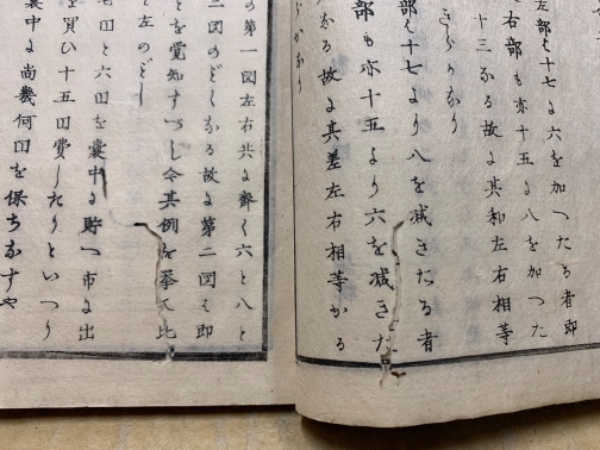 左部も十七に六を加へたる者即
右部も亦十五に八を加へた
十三なる故に其和左右相等
きらかなり
部も十七より八を減きたる者
部も亦十五より六を減きた
なる故に其差左右相等かる
らかなり
の第一図左右共に斉く六と八と
二図のごくなる故に第二図も即
とを覚知すべし今其例を挙て比
と左のごし
田と六田を嚢中に貯へ市に出
を買ひ十五田費したりといへり
嚢中に尚幾何田を保ちなすや